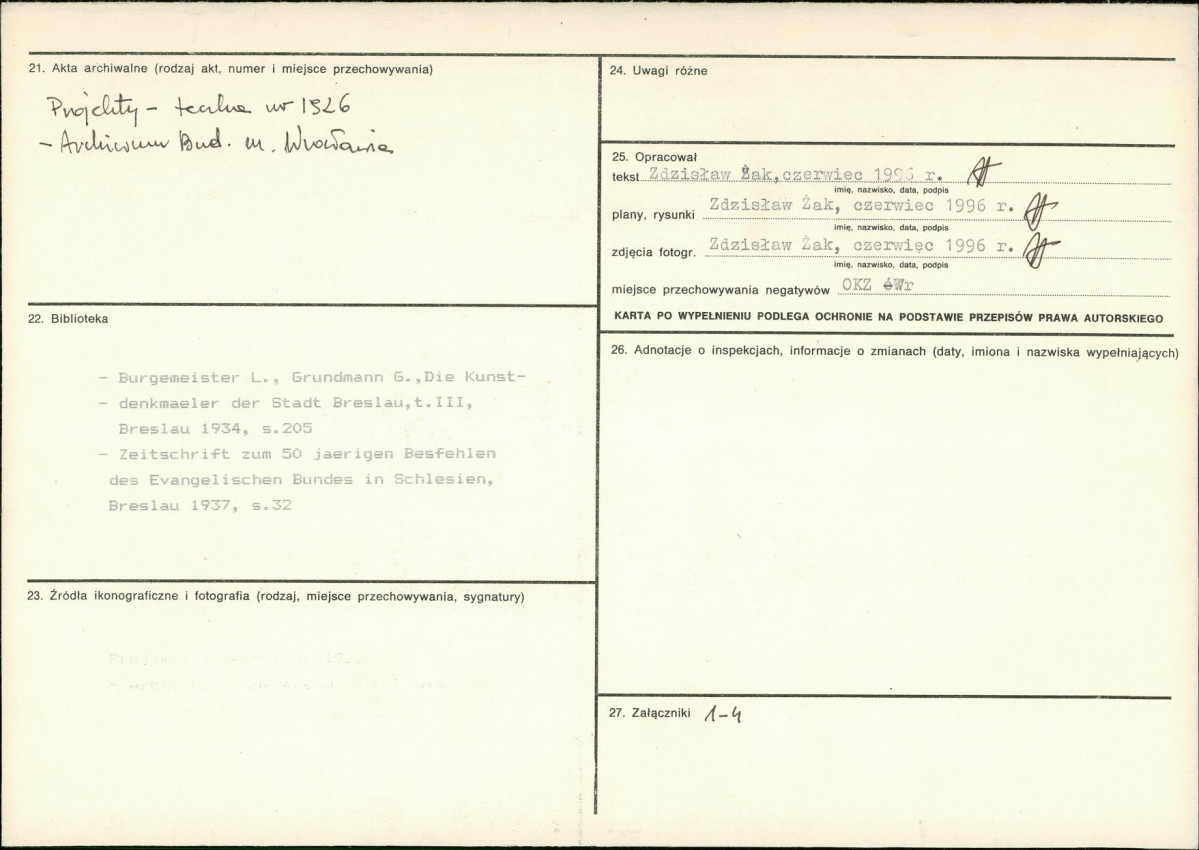 21. Akta archiwalne (rodzaj akt, numer i miejsce przechowywania)
Projekty – teczka nr 1926
– Archiwum Bud. m. Wrocławia
22. Biblioteka
– Burgemeister L., Grundmann G.,Die Kunst–
– denkmaeler der Stadt Breslau,t.III,
Breslau 1934, s.205
– Zeitschrift zum 50 jaerigen Besfehlen
des Evangelischen Bundes in Schlesien,
Breslau 1937, s.32
23. Źródła ikonograficzne i fotografia (rodzaj, miejsce przechowywania, sygnatury)
24. Uwagi różne
25. Opracował
tekst Zdzisław Żak,czerwiec 1996 r.
imię, nazwisko, data, podpis
plany, rysunki Zdzisław Żak, czerwiec 1996 r.
imię, nazwisko, data, podpis
zdjęcia fotogr. Zdzisław Żak, czerwiec 1996 r.
imię, nazwisko, data, podpis
miejsce przechowywania negatywów OKZ Wr
KARTA PO WYPEŁNIENIU PODLEGA OCHRONIE NA PODSTAWIE PRZEPISÓW PRAWA AUTORSKIEGO
26. Adnotacje o inspekcjach, informacje o zmianach (daty, imiona i nazwiska wypełniających)
27. Załączniki 1–4